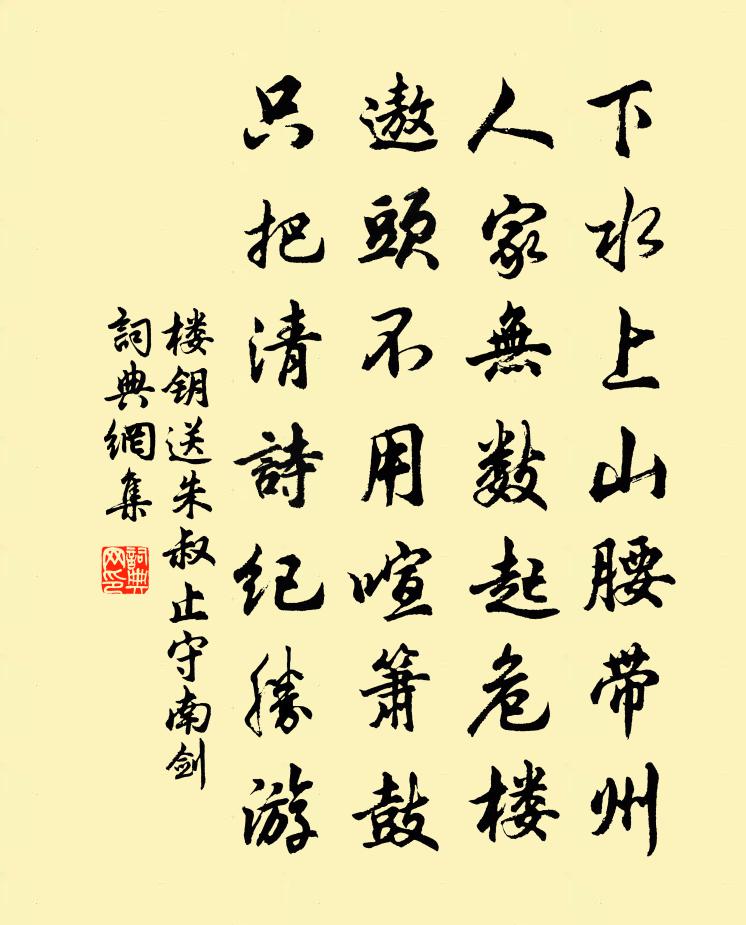 下水上山腰带州
人家無数起危楼
遨頭不用喧箫鼓
只把清詩纪勝游
楼钥送朱叔止守南剑
詞典網集
詞典网印